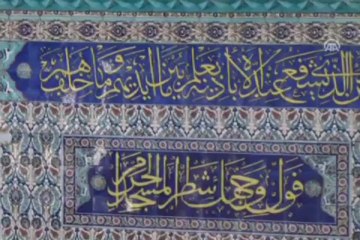 الذي يشفع عنده إلا بإذنه يعلم ما بين أيديهم وما خلفهم
فول وجهك شطر المسجد الحرام